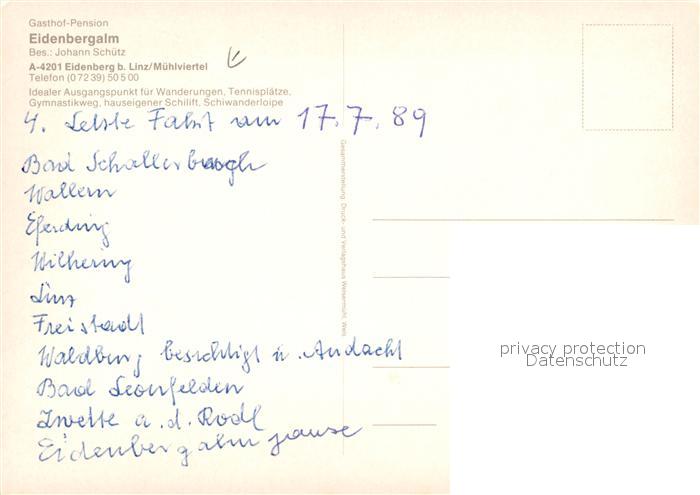 Gasthof-Pension
Eidenbergalm
Bes.: Johann Schütz
A-4201 Eidenberg b. Linz/Mühlviertel
Telefon (0 72 39) 50 5 00
Idealer Ausgangspunkt für Wanderungen, Tennisplätze,
Gymnastikweg, hauseigener Schilift, Schiwanderloipe
4. Letzte Fahrt am 17. 7. 89
Bad Schallerbach
Wallern
Eferding
Wilhering
Linz
Freistadt
Waldburg besichtigt u. Andacht
Bad Leonfelden
Zwettl a. d. Rodl
Eidenbergalm jause
Gesamtherstellung: Druck- und Verlagshaus Welsermühl, Wels
privacy protection
Datenschutz